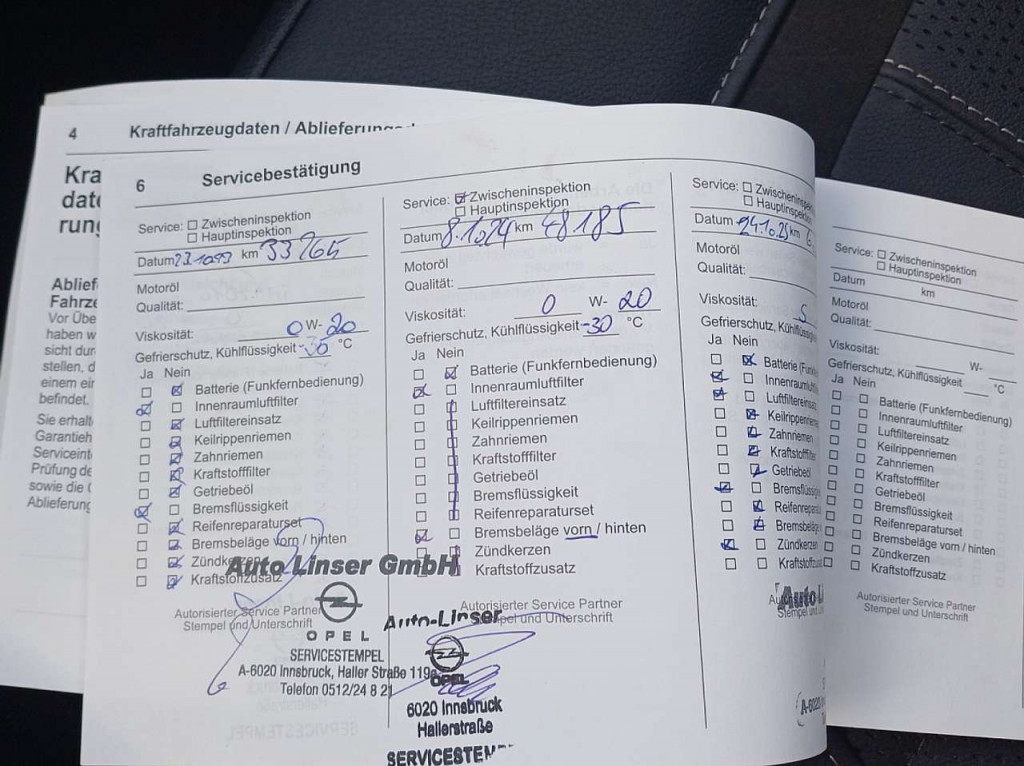 4 Kraftfahrzeugdaten / Ablieferung
Kra
date
rung
Ablief
Fahrze
Vor Übe
haben w
sicht dur
stellen, d
einem ein
befindet.
Sie erhalt
Garantieh
Serviceint
Prüfung de
sowie die
Ablieferung
6 Servicebestätigung
Service: Zwischeninspektion
Hauptinspektion
Datum km
Motoröl
Qualität:
Viskosität: 0 W- 20
Gefrierschutz, Kühlflüssigkeit °C
Ja Nein
Batterie (Funkfernbedienung)
Innenraumluftfilter
Luftfiltereinsatz
Keilrippenriemen
Zahnriemen
Kraftstofffilter
Getriebeöl
Bremsflüssigkeit
Reifenreparaturset
Bremsbeläge vorn / hinten
Zündkerzen
Kraftstoffzusatz
Auto Linser GmbH
Autorisierter Service Partner
Stempel und Unterschrift
OPEL
SERVICESTEMPEL
A-6020 Innsbruck, Haller Straße 119a
Telefon 0512/24 8 21
Service: Zwischeninspektion
Hauptinspektion
Datum 8.10.24 km 48185
Motoröl
Qualität:
Viskosität: 0 W- 20
Gefrierschutz, Kühlflüssigkeit -30 °C
Ja Nein
Batterie (Funkfernbedienung)
Innenraumluftfilter
Luftfiltereinsatz
Keilrippenriemen
Zahnriemen
Kraftstofffilter
Getriebeöl
Bremsflüssigkeit
Reifenreparaturset
Bremsbeläge vorn / hinten
Zündkerzen
Kraftstoffzusatz
Autorisierter Service Partner
Stempel und Unterschrift
Auto-Linser
OPEL
6020 Innsbruck
Hallerstraße
SERVICESTEMP
Service: Zwischeninspektion
Hauptinspektion
Datum 24.10.25 km 6
Motoröl
Qualität:
Viskosität:
Gefrierschutz, Kühlflüssigk
Ja Nein
Batterie (Funk
Innenraumluft
Luftfiltereinsa
Keilrippenrieme
Zahnriemen
Kraftstofffilter
Getriebeöl
Bremsflüssigk
Reifenrepara
Bremsbeläge
Zündkerzen
Kraftstoffzus
Auto L
Stempel
A-6020
Service: Zwischeninspektion
Hauptinspektion
Datum km
Motoröl
Qualität:
Viskosität: W-
Gefrierschutz, Kühlflüssigkeit °C
Ja Nein
Batterie (Funkfernbedienung)
Innenraumluftfilter
Luftfiltereinsatz
Keilrippenriemen
Zahnriemen
Kraftstofffilter
Getriebeöl
Bremsflüssigkeit
Reifenreparaturset
Bremsbeläge vorn / hinten
Zündkerzen
Kraftstoffzusatz
Autorisierter Service Partner
Stempel und Unterschrift